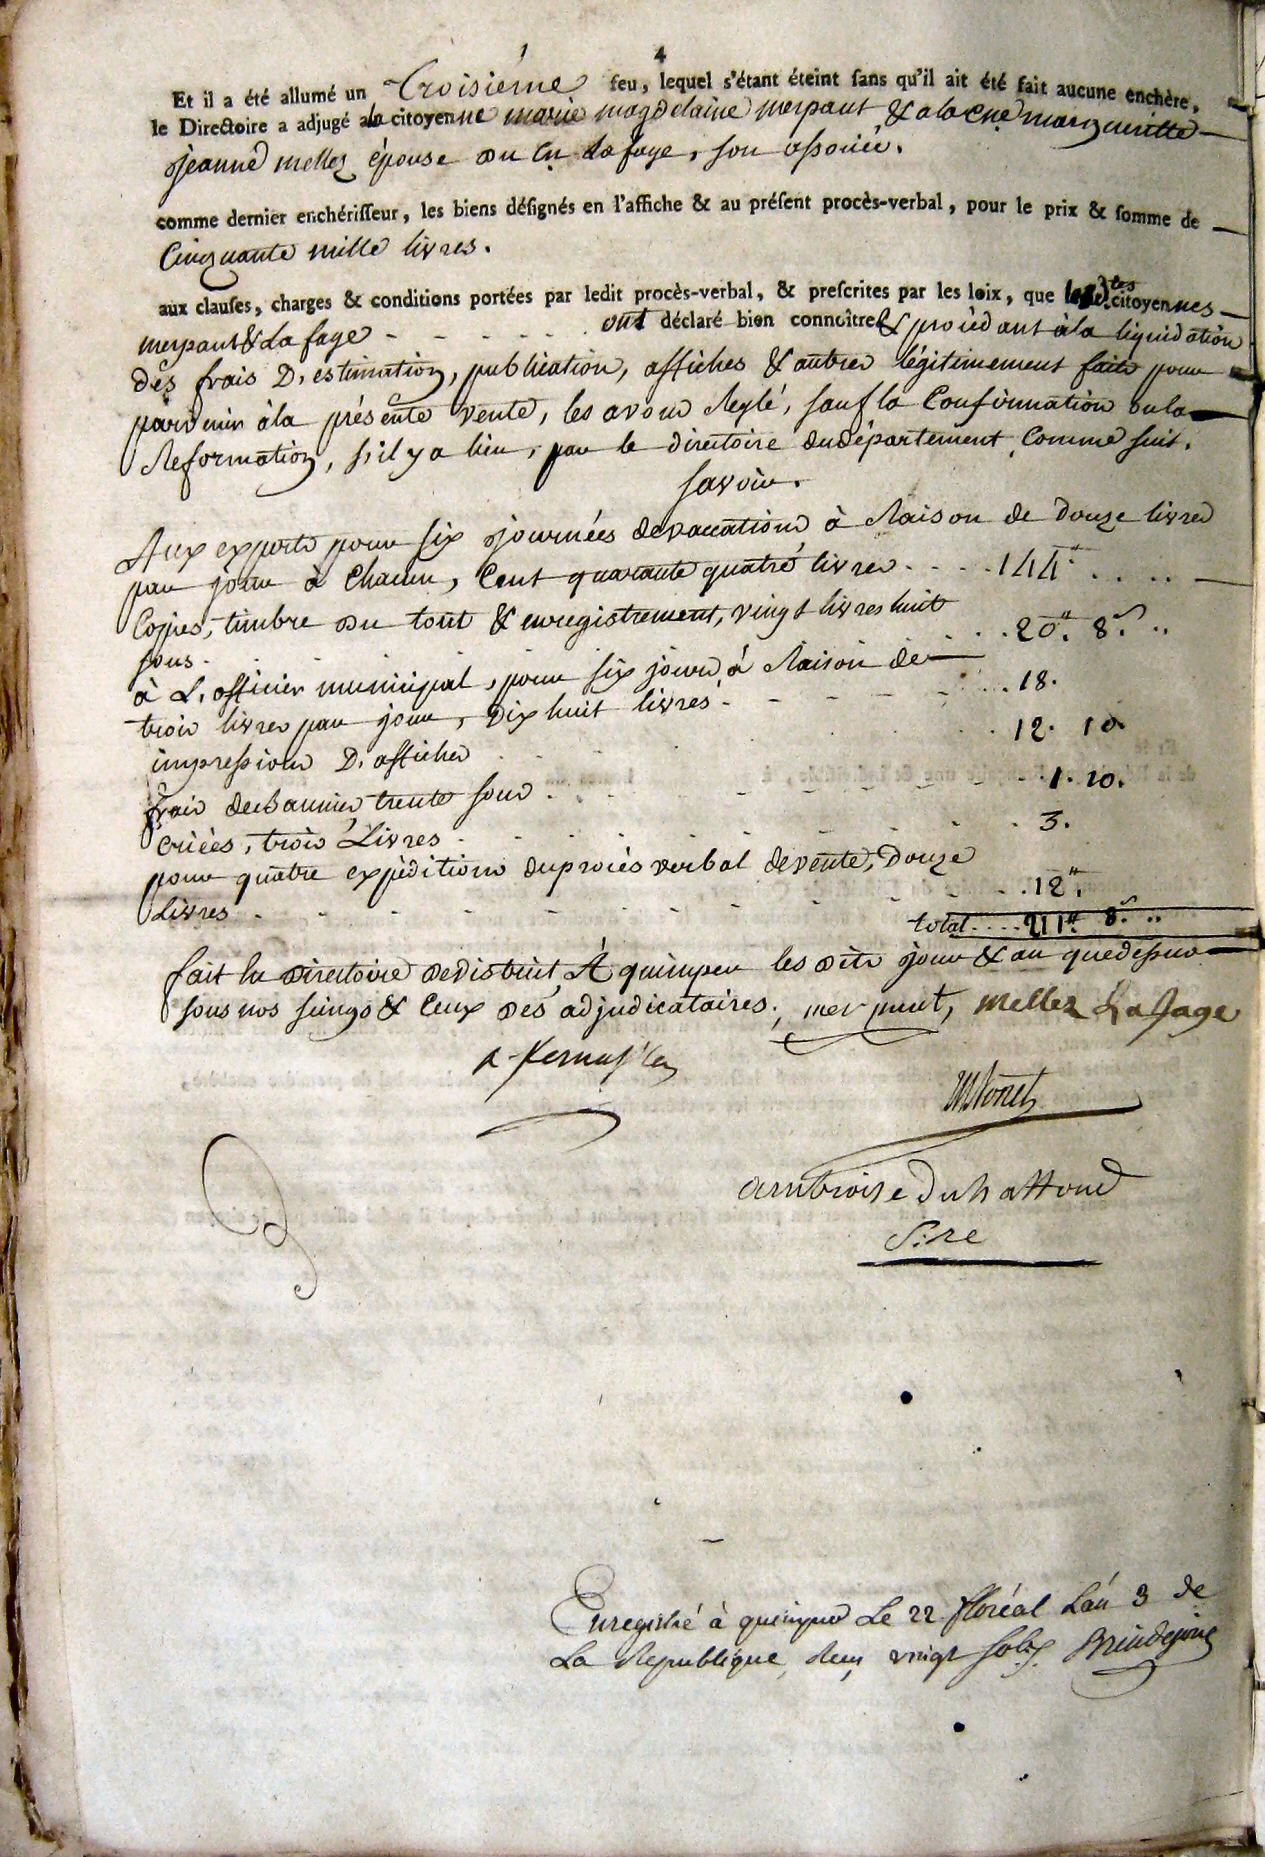 4
Et il a été allumé un Troisième feu, lequel s'étant éteint ſans qu'il ait été fait aucune enchère,
le Directoire a adjugé a la citoyenne marie magdelaine merpaut & a la cne margueritte
jeanne mellez épouse du Cn Lafage, son associée.
comme dernier enchériſſeur, les biens déſignés en l'affiche & au préſent procès-verbal, pour le prix & ſomme de
Cinquante mille livres.
aux clauſes, charges & conditions portées par ledit procès-verbal, & preſcrites par les loix, que lesdtes citoyennes
merpaut & Lafage - - - - - ont déclaré bien connoître & procédant à la liquidation
des frais D'estimation, publication, affiches & autres légitimement faits pour
parvenir à la présente vente, les avons Reglé, sauf la Confirmation ou la
Reformation, s'il y a lieu, par le directoire du département, Comme suit.
Savoir.
Aux experts pour six journées de vacations à Raison de douze livres
par jour à Chacun, Cent quarante quatre livres . . . . 144" . . . .
Copies, timbre du tout & enregistrement, vingt livres huit
sous . . . . 20". 8s. ..
à L'officier municipal, pour six jours à Raison de
trois livres par jour, Dix huit livres . - - - - . . 18.
impressions D'affiches . . . . 12. 10.
frais de bannies, trente sous . . . . 1. 10.
Criées, trois Livres . . . . 3.
pour quatre expéditions du procès verbal de vente, Douze
Livres . - - - - - - . . 12".
total . . . . 211" 8s. ..
fait en Directoire de district, A quimper les dits jour & an que dessus
sous nos seings & Ceux des adjudicataires. merpaut, Mellez Lafage
ambroise Duhaffond
Enregistré à quimper Le 22 floréal L'an 3 de
La République, Reçu vingt sols.